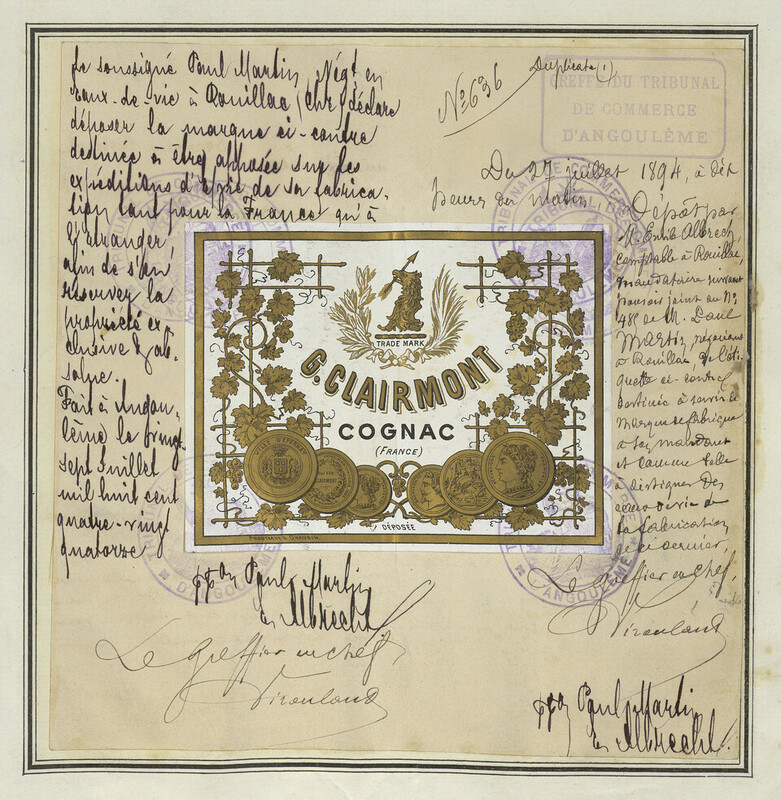 Je soussigné Paul Martin, Négt en
eaux-de-vie à Rouillac (Chte) déclare
déposer la marque ci-contre
destinée à être apposée sur les
expéditions d'Eau de vie de sa fabrica-
tion tant pour la France qu'à
l'étranger,
afin de s'en
réserver la
propriété ex-
clusive & ab-
solue.
Fait à Angou-
lême le vingt
sept Juillet
mil huit cent
quatre-vingt
quatorze
ppon Paul Martin
Em Albrecht
Le Greffier en chef,
Duplicata (1)
No 636
GREFFE DU TRIBUNAL
DE COMMERCE
D'ANGOULÊME
Du 27 juillet 1894, à dix
heures du matin.
Dépôt par
M. Emile Albrecht,
comptable à Rouillac,
mandataire suivant
pouvoir joint au No
485 de M. Paul
Martin, négociant
à Rouillac, de l'éti-
quette ci-contre
destinée à servir de
marque de fabrique
à son mandant
et comme telle
à distinguer des
eaux de vie de
la fabrication
de ce dernier.
Le greffier en chef,
ppon Paul Martin
Em Albrecht
TRADE MARK
G. CLAIRMONT
COGNAC
(FRANCE)
VILLE D'EPERNAY
DÉPOSÉE
TRIBUNAL DE COMMERCE
D'ANGOULÊME